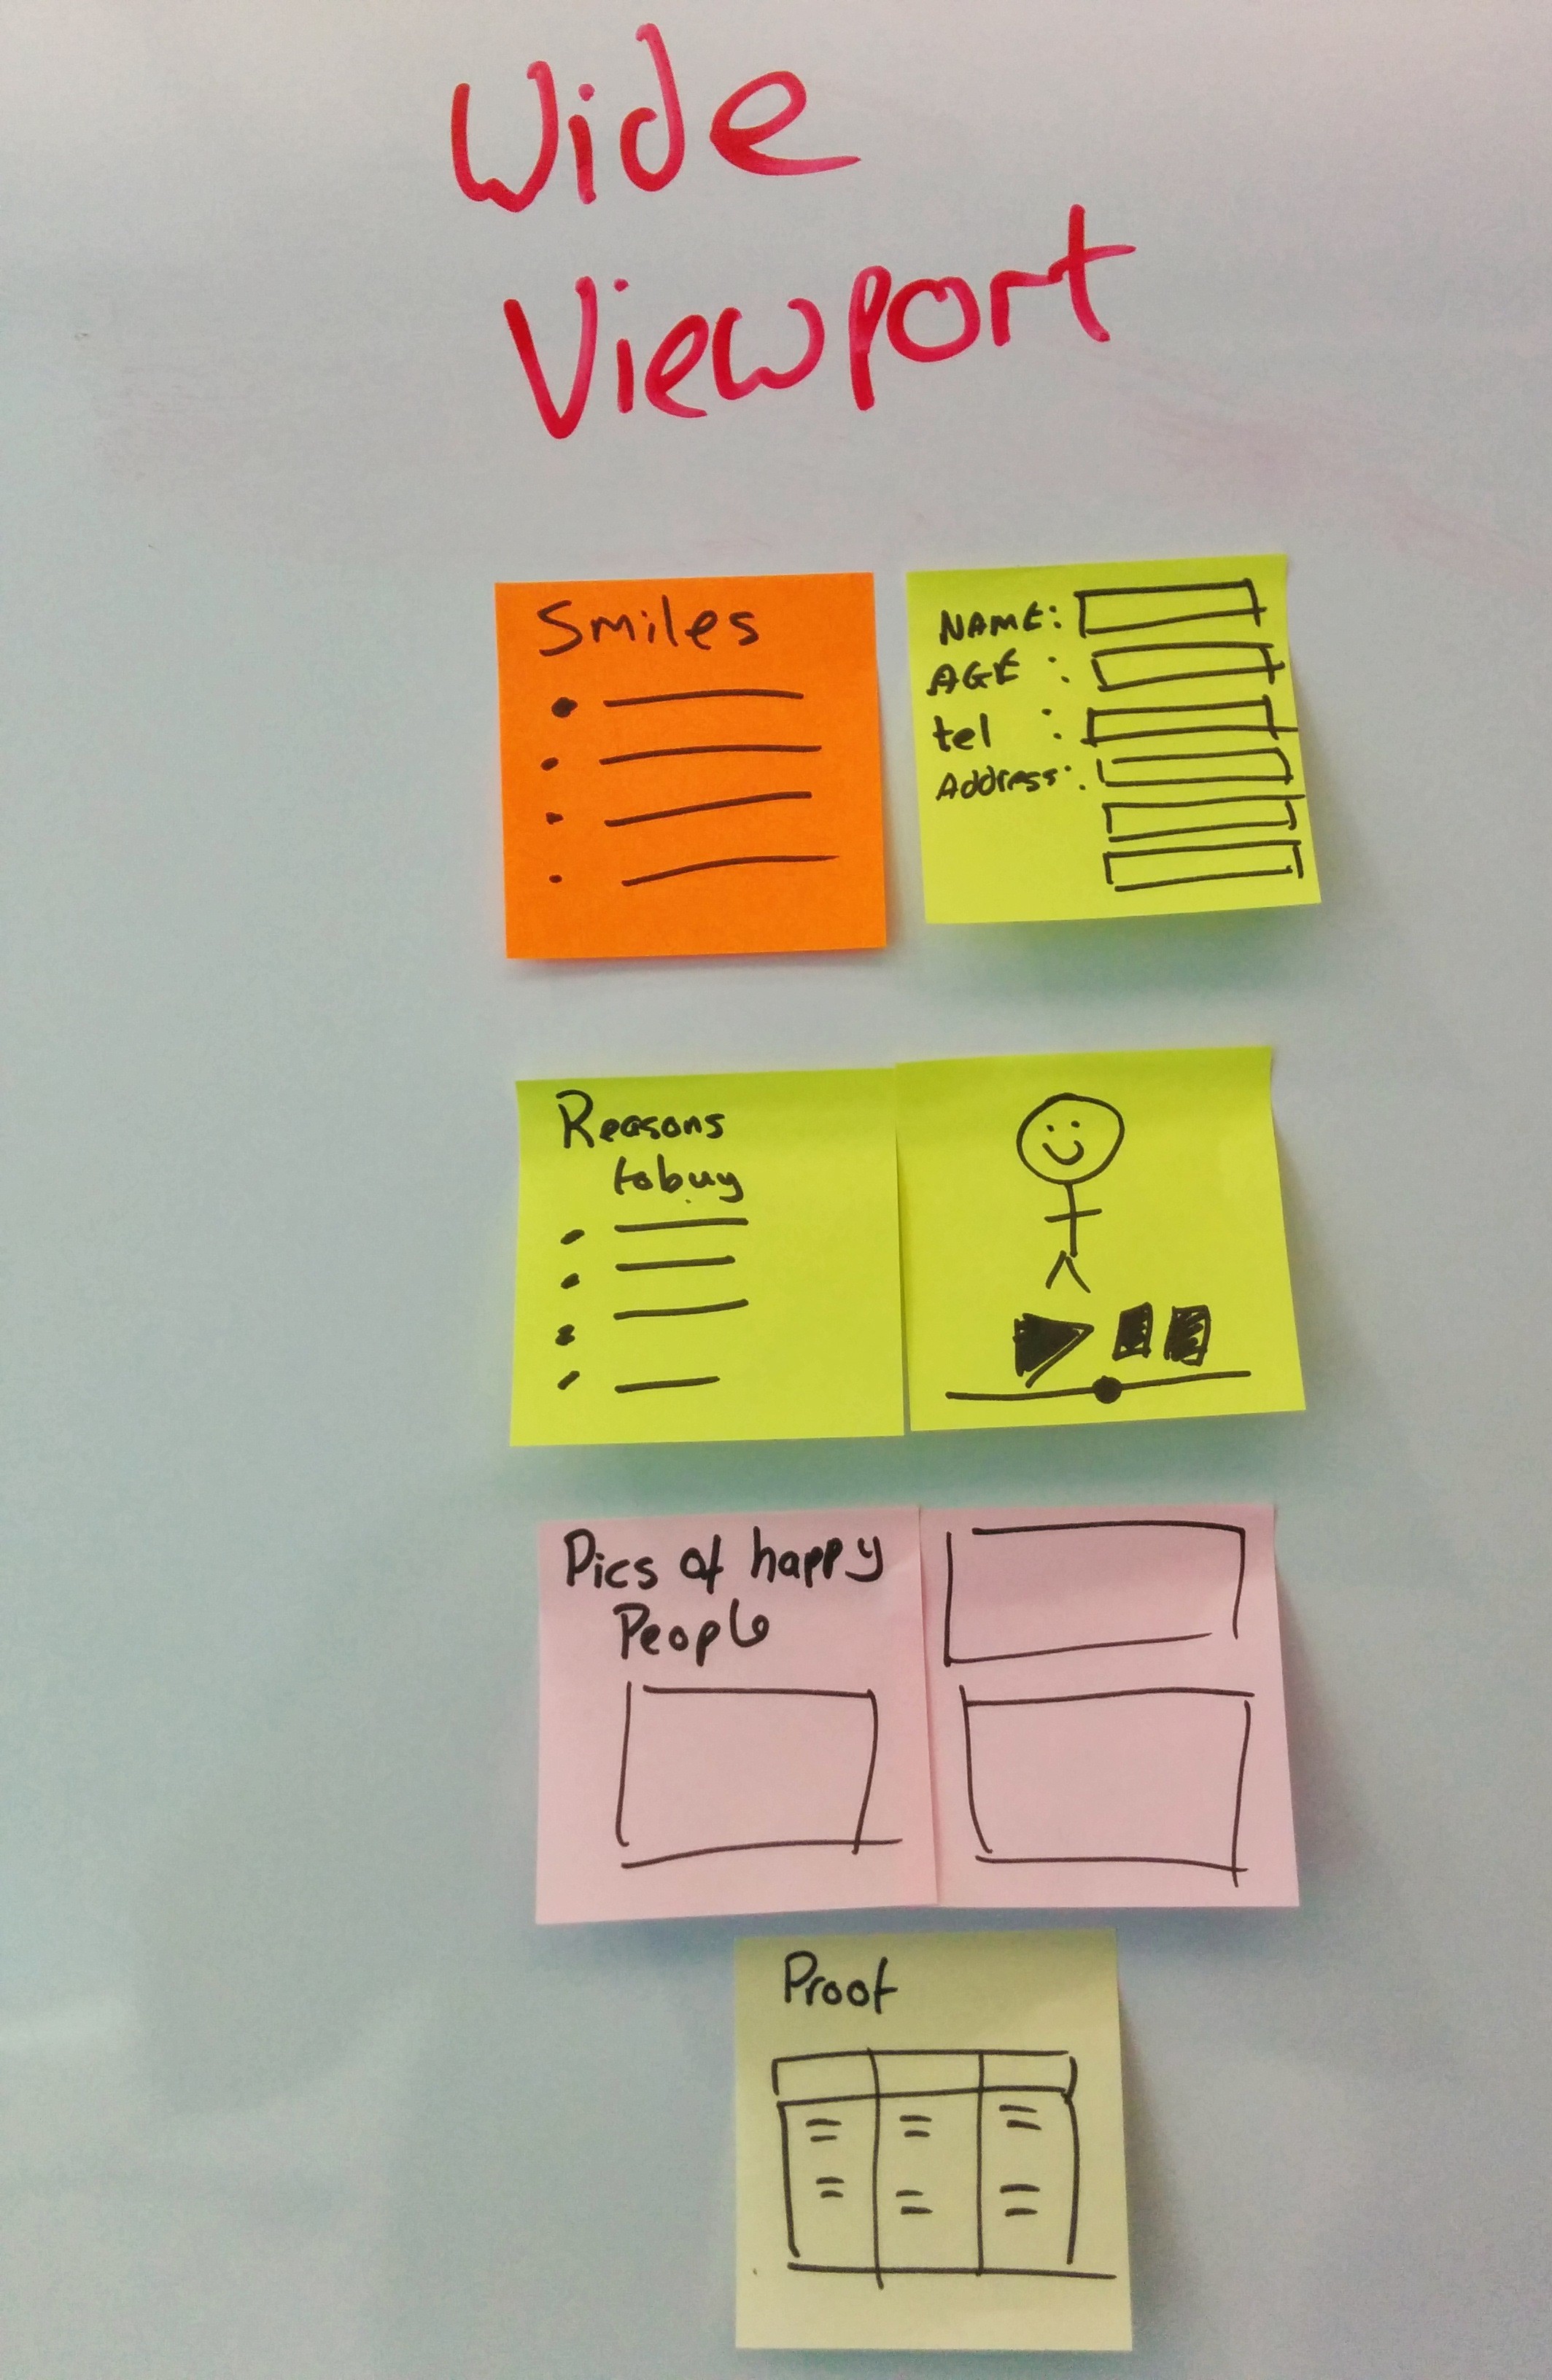 Wide
Viewport
Smiles
NAME:
AGE :
tel :
Address:
Reasons
to buy
Pics of happy
People
Proof